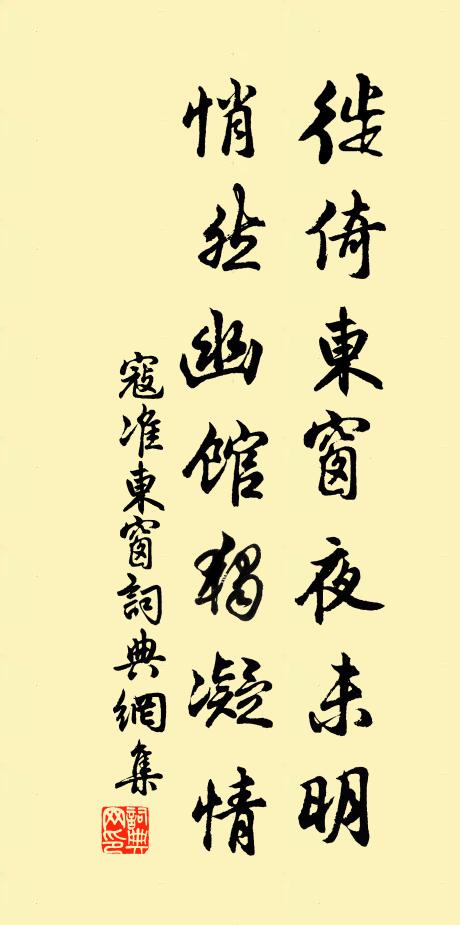 徙倚東窗夜未明
悄然幽館獨凝情
寇准東窗詞典網集
詞典网印